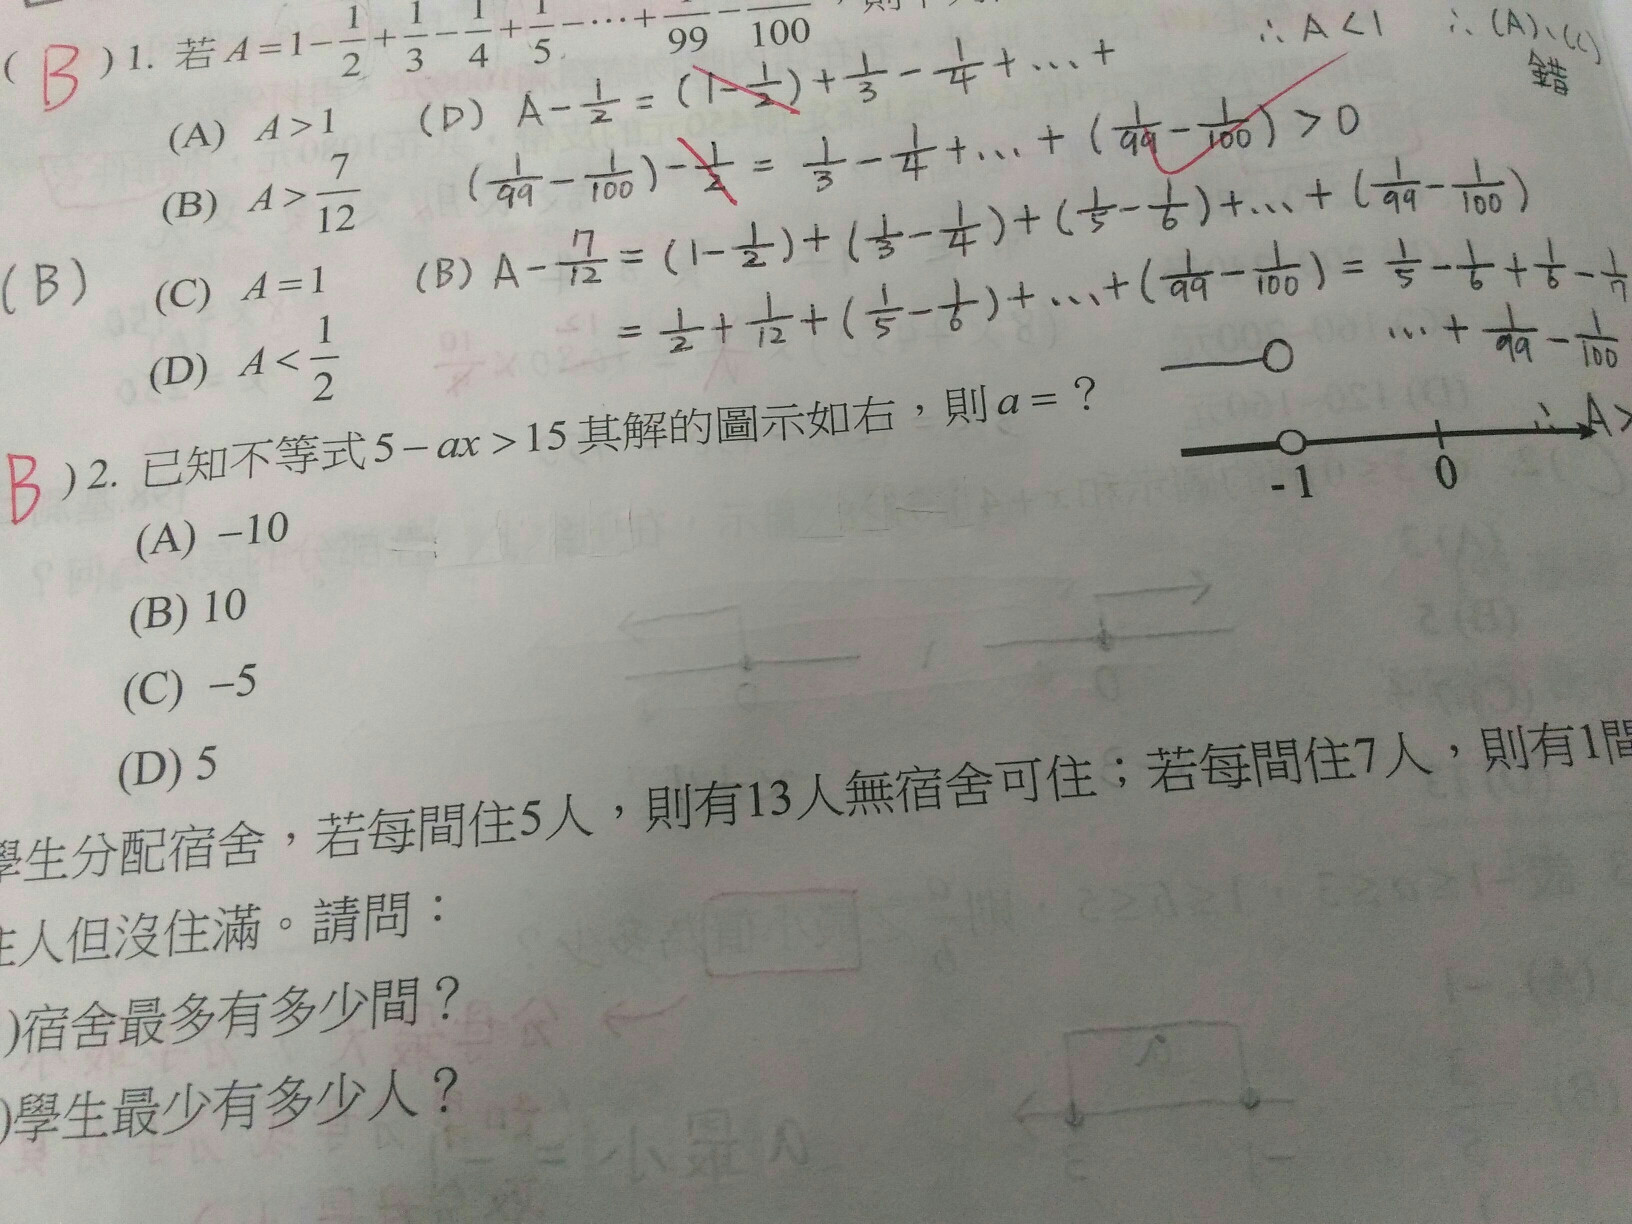 ( B ) 1. 若 A = 1 - 1/2 + 1/3 - 1/4 + 1/5 - … + 1/99 - 1/100 ，則
∴ A < 1 ∴ (A)、(C) 錯
(A) A > 1
(D) A - 1/2 = (1 - 1/2) + 1/3 - 1/4 + … +
(1/99 - 1/100) - 1/2 = 1/3 - 1/4 + … + (1/99 - 1/100) > 0
(B) A > 7/12
(B)
(C) A = 1
(B) A - 7/12 = (1 - 1/2) + (1/3 - 1/4) + (1/5 - 1/6) + … + (1/99 - 1/100)
= 1/2 + 1/12 + (1/5 - 1/6) + … + (1/99 - 1/100) = 1/5 - 1/6 + 1/6 - 1/7
… + 1/99 - 1/100
(D) A < 1/2
∴ A >
B ) 2. 已知不等式 5 - ax > 15 其解的圖示如右，則 a = ？
-1 0
(A) -10
(B) 10
(C) -5
(D) 5
學生分配宿舍，若每間住5人，則有13人無宿舍可住；若每間住7人，則有1間
住人但沒住滿。請問：
)宿舍最多有多少間？
)學生最少有多少人？